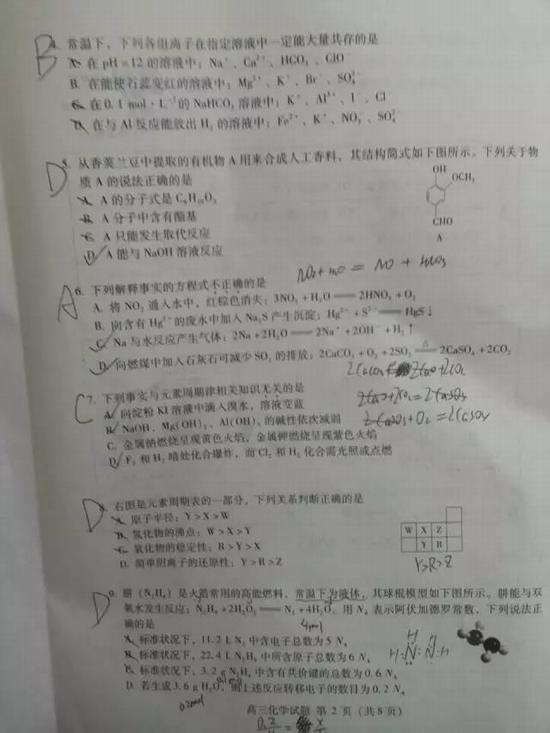 B
4. 常温下，下列各组离子在指定溶液中一定能大量共存的是
A. 在 pH=12 的溶液中：Na⁺、Ca²⁺、HCO₃⁻、ClO⁻
B. 在能使石蕊变红的溶液中：Mg²⁺、K⁺、Br⁻、SO₄²⁻
C. 在 0.1 mol·L⁻¹的 NaHCO₃ 溶液中：K⁺、Al³⁺、I⁻、Cl⁻
D. 在与 Al 反应能放出 H₂ 的溶液中：Fe²⁺、K⁺、NO₃⁻、SO₄²⁻
D
5. 从香荚兰豆中提取的有机物 A 用来合成人工香料，其结构简式如下图所示。下列关于物
质 A 的说法正确的是
A. A 的分子式是 C₈H₁₀O₃
B. A 分子中含有酯基
C. A 只能发生取代反应
D. A 能与 NaOH 溶液反应
OH
OCH₃
CHO
A
NO₂+H₂O = NO + HNO₃
A
6. 下列解释事实的方程式不正确的是
A. 将 NO₂ 通入水中，红棕色消失：3NO₂+H₂O=2HNO₃+O₂
B. 向含有 Hg²⁺的废水中加入 Na₂S 产生沉淀：Hg²⁺+S²⁻=HgS↓
C. Na 与水反应产生气体：2Na+2H₂O=2Na⁺+2OH⁻+H₂↑
D. 向燃煤中加入石灰石可减少 SO₂ 的排放：2CaCO₃+O₂+2SO₂=△=2CaSO₄+2CO₂
C
7. 下列事实与元素周期律相关知识无关的是
A. 向淀粉 KI 溶液中滴入溴水，溶液变蓝
B. NaOH、Mg(OH)₂、Al(OH)₃ 的碱性依次减弱
C. 金属钠燃烧呈现黄色火焰，金属钾燃烧呈现紫色火焰
D. F₂ 和 H₂ 暗处化合爆炸，而 Cl₂ 和 H₂ 化合需光照或点燃
D
8. 右图是元素周期表的一部分，下列关系判断正确的是
A. 原子半径：Y>X>W
B. 氢化物的沸点：W>X>Y
C. 氧化物的稳定性：R>Y>X
D. 简单阴离子的还原性：Y>R>Z
W X Z
Y R
Y>R>Z
D
9. 肼（N₂H₄）是火箭常用的高能燃料，常温下为液体，其球棍模型如下图所示。肼能与双
氧水发生反应：N₂H₄+2H₂O₂=N₂+4H₂O。用 N_A 表示阿伏加德罗常数，下列说法正
确的是
4mol
A. 标准状况下，11.2 L N₂ 中含电子总数为 5 N_A
B. 标准状况下，22.4 L N₂H₄ 中所含原子总数为 6 N_A
C. 标准状况下，3.2 g N₂H₄ 中含有共价键的总数为 0.6 N_A
D. 若生成 3.6 g H₂O，则上述反应转移电子的数目为 0.2 N_A
0.2mol
高三化学试题 第 2 页（共 8 页）